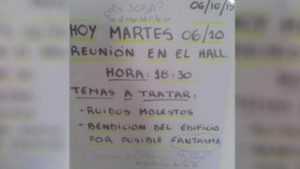 ¿Es JODA?
06/10/15
HOY MARTES 06/10
REUNIÓN EN EL HALL.
HORA: 18:30
TEMAS A TRATAR:
- RUIDOS MOLESTOS
- BENDICION DEL EDIFICIO
POR POSIBLE FANTASMA